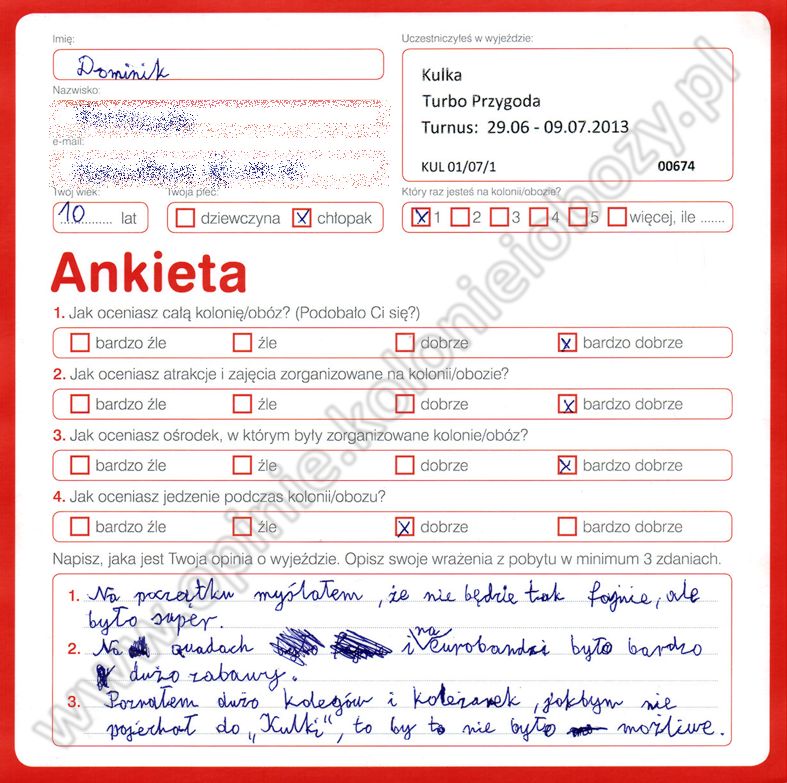 Imię:
Dominik
Nazwisko:
e-mail:
Twój wiek:
10 lat
Twoja płeć:
dziewczyna x chłopak
Uczestniczyłeś w wyjeździe:
Kulka
Turbo Przygoda
Turnus: 29.06 - 09.07.2013
KUL 01/07/1 00674
Który raz jesteś na kolonii/obozie?
x 1 2 3 4 5 więcej, ile .......
Ankieta
1. Jak oceniasz całą kolonię/obóz? (Podobało Ci się?)
bardzo źle źle dobrze x bardzo dobrze
2. Jak oceniasz atrakcje i zajęcia zorganizowane na kolonii/obozie?
bardzo źle źle dobrze x bardzo dobrze
3. Jak oceniasz ośrodek, w którym były zorganizowane kolonie/obóz?
bardzo źle źle dobrze x bardzo dobrze
4. Jak oceniasz jedzenie podczas kolonii/obozu?
bardzo źle źle x dobrze bardzo dobrze
Napisz, jaka jest Twoja opinia o wyjeździe. Opisz swoje wrażenia z pobytu w minimum 3 zdaniach.
1. Na początku myślałem, że nie będzie tak fajnie, ale
było super.
2. Na quadach i na eurobandzi było bardzo
dużo zabawy.
3. Poznałem dużo kolegów i koleżanek, jakbym nie
pojechał do „Kulki", to by to nie było możliwe.
www.opinie.kolonieiobozy.pl